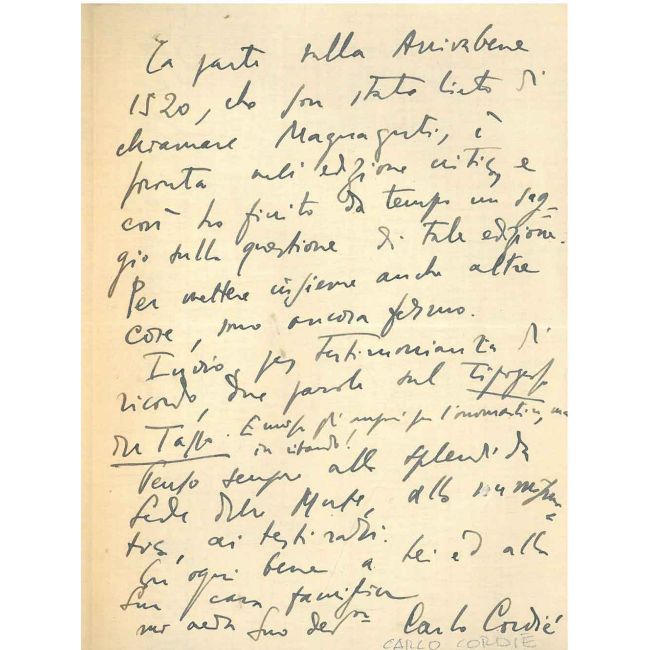 La parte sulla Arrivabene
1520, che son stato lieto di
chiamare Magnaguti, è
pronta nell'edizione critica, e
così ho finito da tempo un sag-
gio sulla questione di tale edizione.
Per mettere insieme anche altre
cose, sono ancora fermo.
Invio, per testimonianza di
ricordo, due parole sul
del Tasso. gli auguri per l'onomastico, ma
in ritardo!
Penso sempre alla splendida
sede delle Muse, alla numisma-
tica, ai testi rari.
Con ogni bene a Lei ed alla
Sua cara famiglia
mi creda Suo dev.mo Carlo Cordié
CARLO CORDIÉ